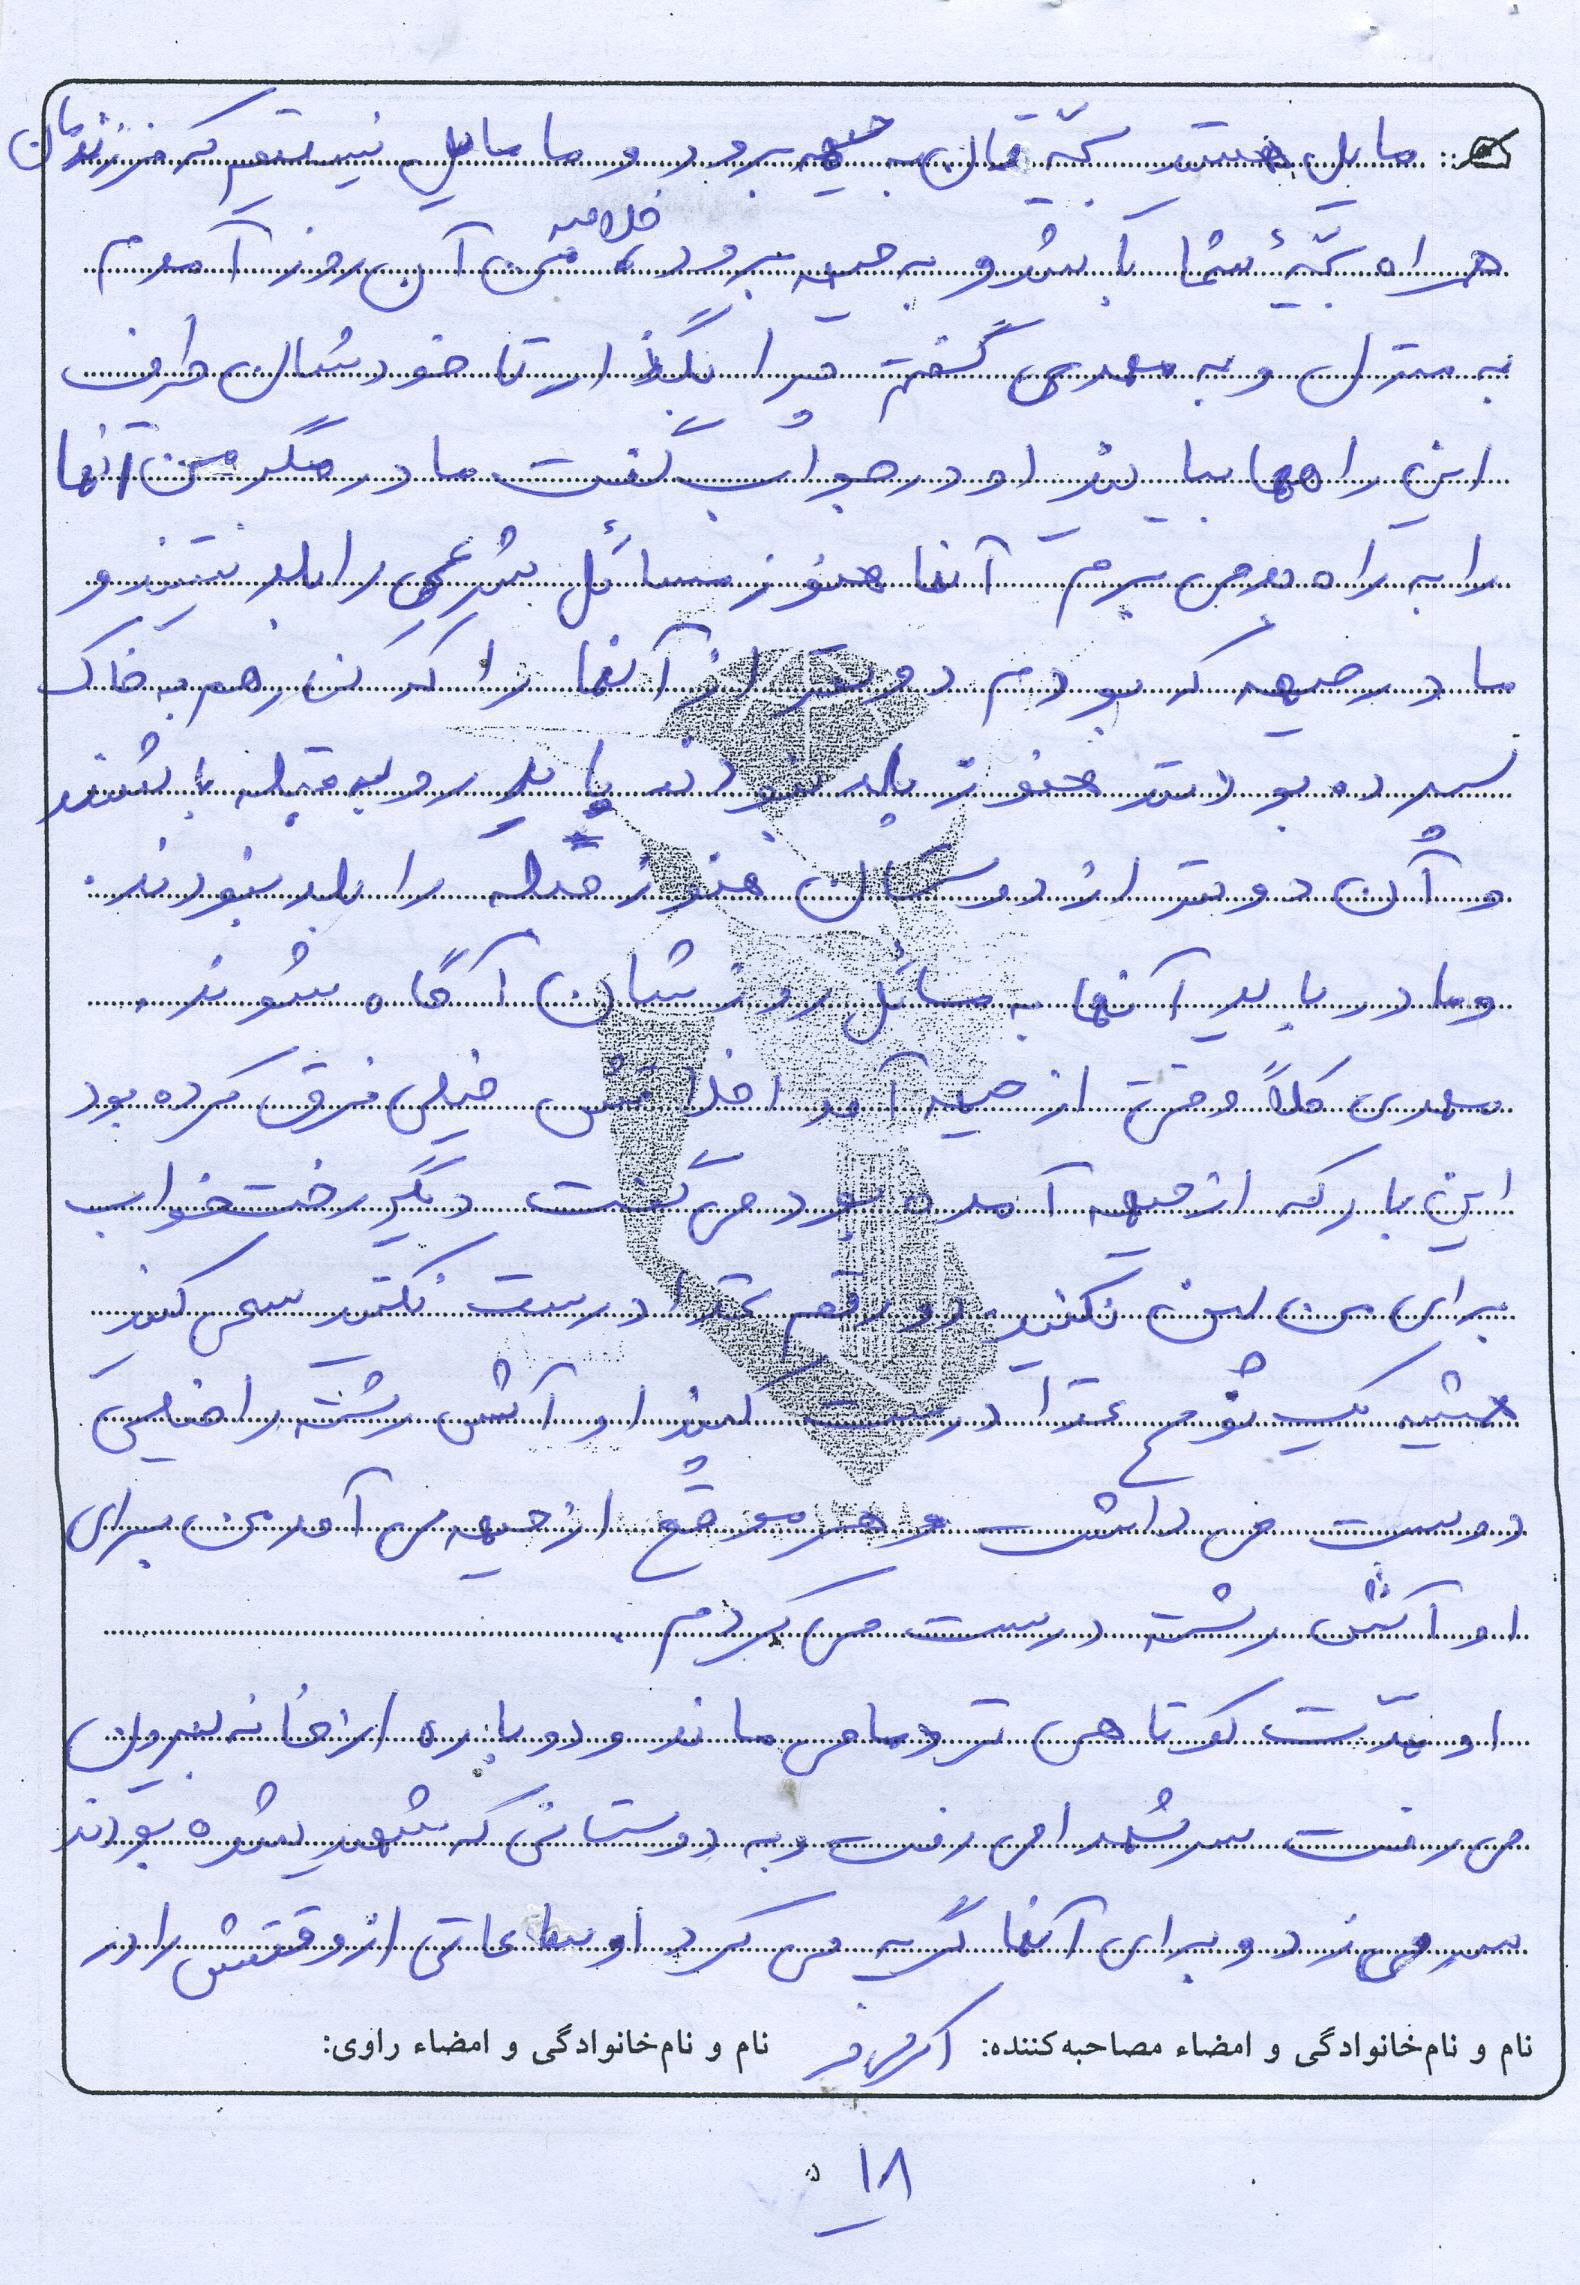 مایل هستید بچّه تان به جبهه برود و ما مایل نیستیم که فرزندمان
همراه بچّۀ شما باشد و به جبهه برود، خلاصه من آن روز آمدم
به منزل و به مهدی گفتم چرا نگذار تا خودشان طرف
این راهها بیایند او در جواب گفت مادر مگر من آنها
را به راه بد می برم آنها هنوز مسائل شرعی را بلد نیستند و
ما در جبهه که بودیم دو نفر از آنها را که کنار هم به خاک
سپرده بودند هنوز بلد نبودند باید رو به قبله باشند
و آن دو نفر از دوستان هنوز قبله را بلد نبودند.
و مادر باید آنها به مسائل روزشان آگاه شوند.
مهدی کلاً وقتی از جبهه آمد اخلاقش خیلی فرق کرده بود
این بار که از جبهه آمده بود می گفت دیگر رختخواب
برای من پهن نکنید دو رقم غذا درست نکنید سعی کنید
همیشه یک نوع غذا درست کنید او آش رشته را خیلی
دوست می داشت و هر موقع از جبهه می آمد من برای
او آش رشته درست می کردم.
او مدّت کوتاهی نزد ما می ماند و دوباره از خانه بیرون
می رفت سر شهدا می رفت و به دوستانی که شهید شده بودند
سر می زد و برای آنها گریه می کرد او ساعاتی از وقتش را در
نام و نام‌خانوادگی و امضاء مصاحبه‌کننده: نام و نام‌خانوادگی و امضاء راوی:
۱۸